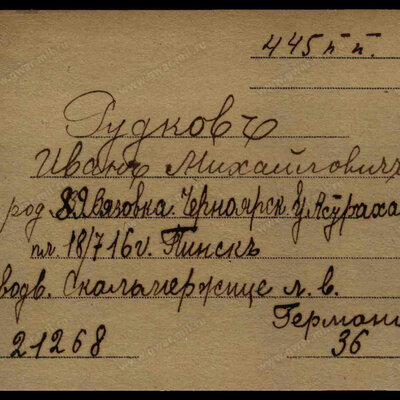 445 п п.
Рудковъ
Иванъ Михайловичъ
род. Вязовка. Черноярск. у. Астраха
пл. 18/7 16 г. Пинскъ
водв. Скальмержице л. в.
Германи
21268
36